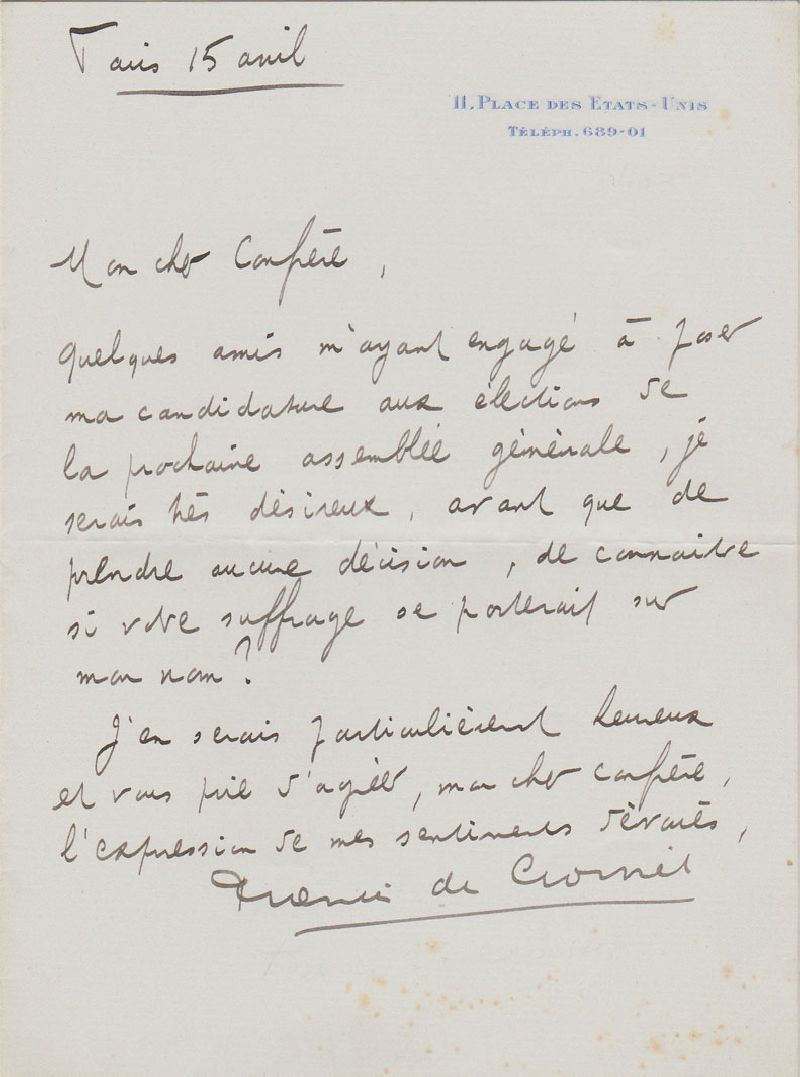 Paris 15 avril
11, PLACE DES ETATS-UNIS
TÉLÉPH. 689-01
Mon cher Confrère,
quelques amis m'ayant engagé à poser
ma candidature aux élections de
la prochaine assemblée générale, je
serais très désireux, avant que de
prendre aucune décision, de connaitre
si votre suffrage se porterait sur
mon nom?
J'en serais particulièrement heureux
et vous prie d'agréer, mon cher confrère,
l'expression de mes sentiments dévoués,
Francis de Croisset